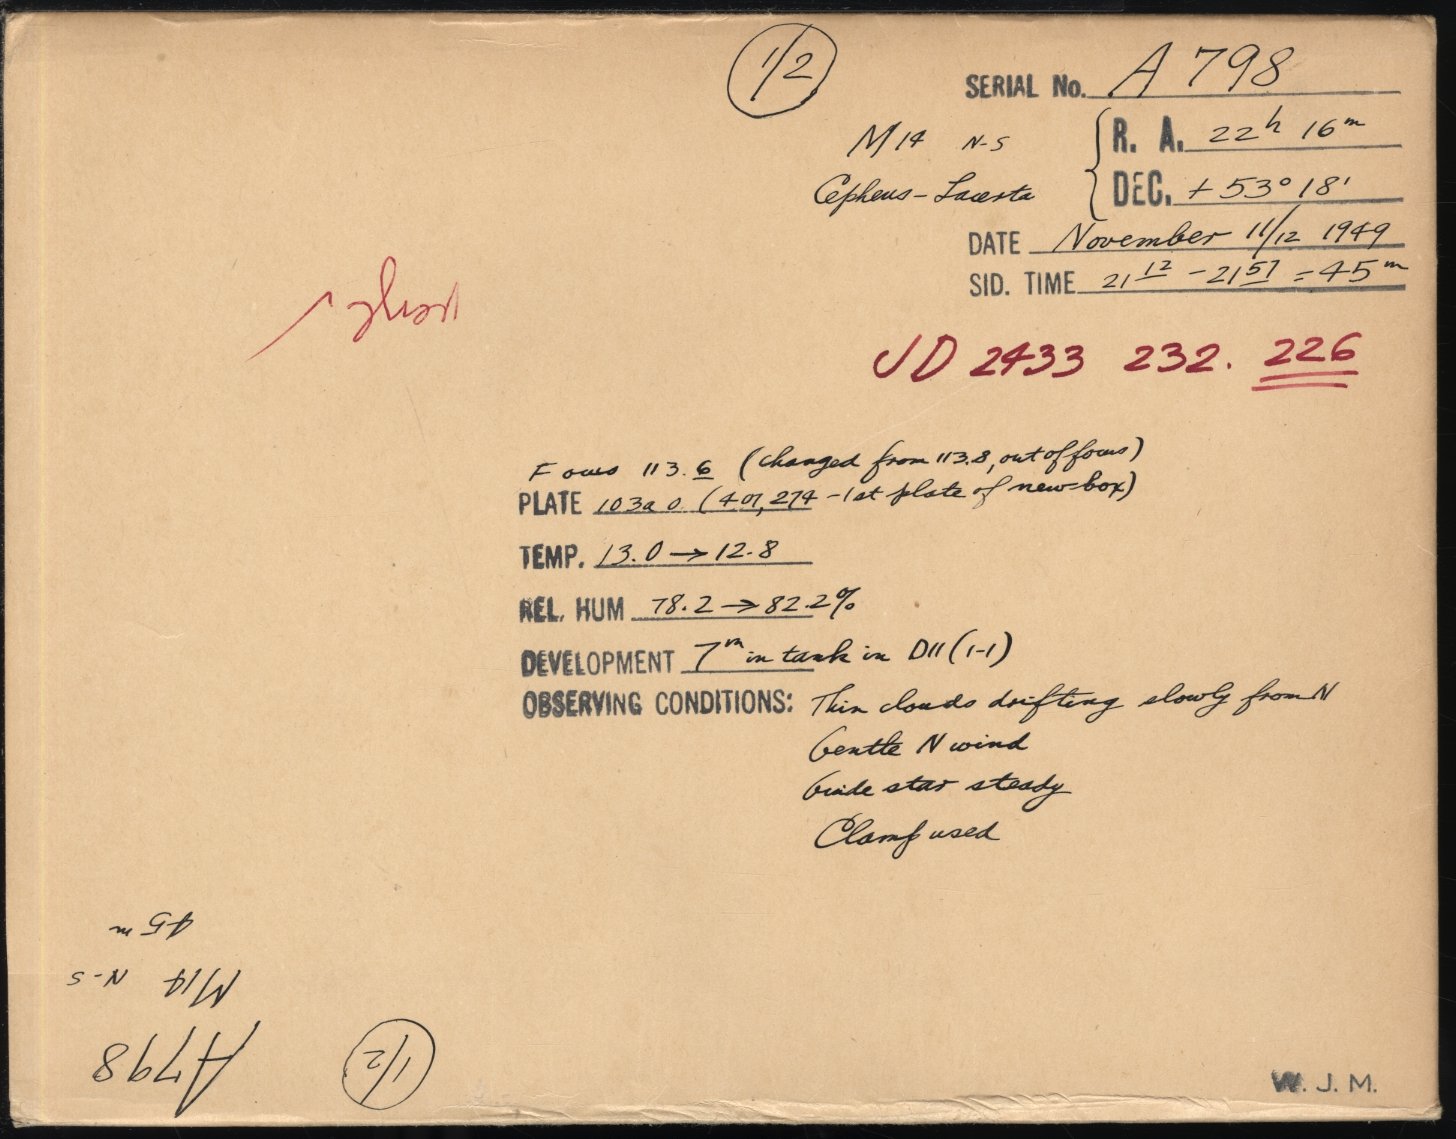 1/2
SERIAL No. A 798
M 14 N-S
R. A. 22h 16m
Cepheus - Lacerta
DEC. + 53° 18'
DATE November 11/12 1949
SID. TIME 21 12 - 21 57 = 45 m
JD 2433 232. 226
Focus 113.6 (changed from 113.8, out of focus)
PLATE 103a O (401,274 - 1st plate of new box)
TEMP. 13.0 → 12.8
REL. HUM 78.2 → 82.2%
DEVELOPMENT 7m in tank in D11 (1-1)
OBSERVING CONDITIONS: Thin clouds drifting slowly from N
Gentle N wind
Guide star steady
Clamp used
A798
M14 N-S
45 m
1/2
W. J. M.